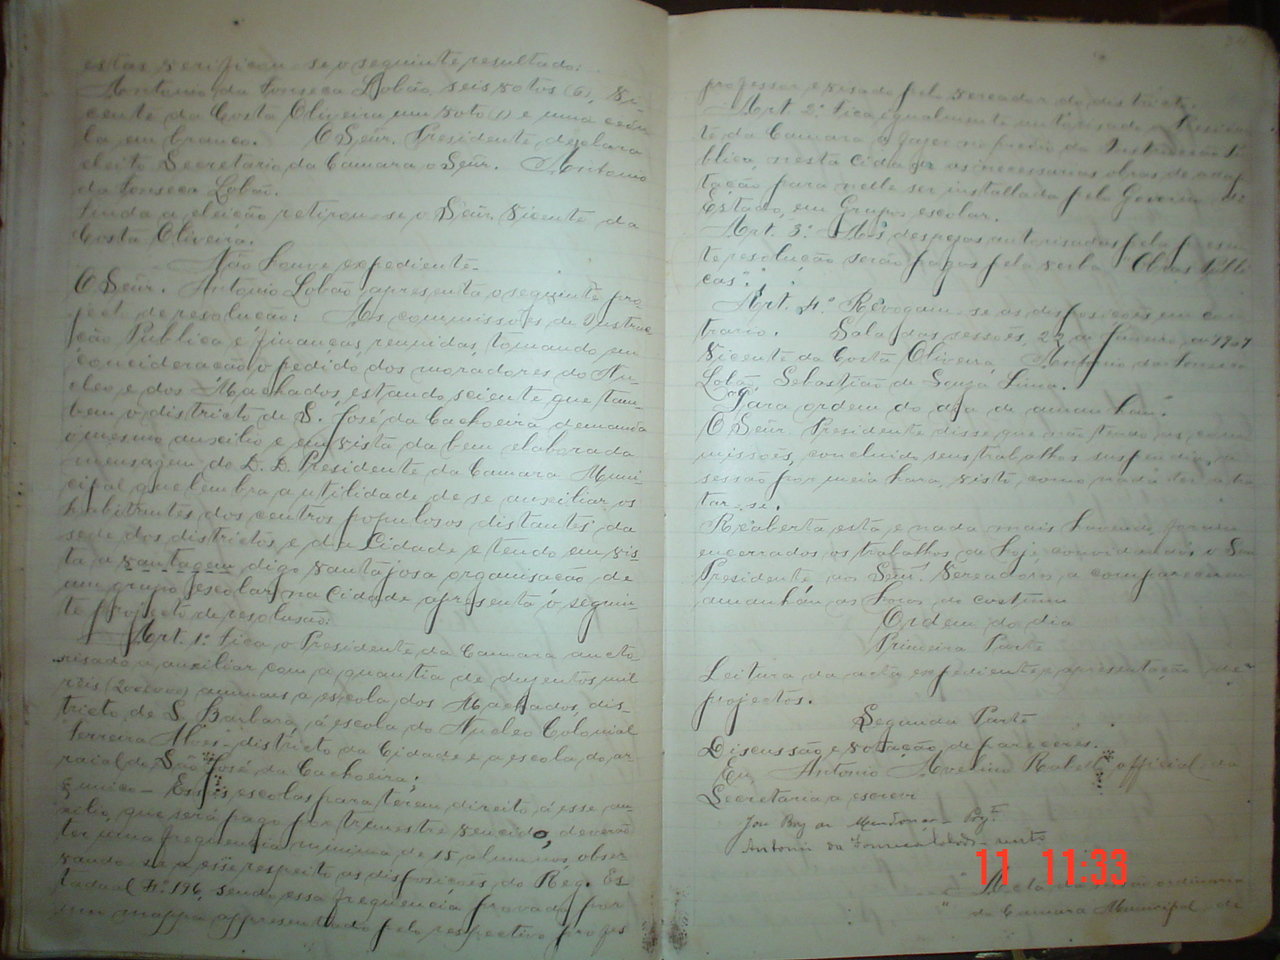 estas verificou-se o seguinte resultado:
Antonio da Fonseca Lobão, seis votos (6), Vi-
cente da Costa Oliveira um voto (1) e uma cedu-
la em branco. O Sñr. Presidente declara
eleito Secretario da Camara o Sñr. Antonio
da Fonseca Lobão.
Finda a eleição retirou-se o Sñr. Vicente da
Costa Oliveira.
Não houve expediente.
O Sñr. Antonio Lobão apresenta o seguinte pro-
jecto de resolução: As commissões de Instruc-
ção Publica e finanças reunidas, tomando em
concideração o pedido dos moradores do Nu-
cleo e dos Machados, estando sciente que tam-
bem o districto de S. José da Cachoeira demanda
o mesmo auxilio e em vista da bem elaborada
mensagem do D. D. Presidente da Camara Muni-
cipal que lembra a utilidade de se auxiliar os
habitantes dos centros populosos distantes da
sede dos districtos e da Cidade e tendo em vis-
ta a vantagem digo vantajosa organisação de
um grupo escolar na Cidade apresenta o seguin-
te projecto de resolução:
Art. 1º Fica o Presidente da Camara aucto-
risado a auxiliar com a quantia de duzentos mil
reis (200000) annuaes a escola dos Machados, dis-
tricto de S. Barbara, á escola do Nucleo Colonial
Ferreira Alves - districto da Cidade e a escola do ar-
raial de São José da Cachoeira;
§ unico - Essas escolas para terem direito á esse au-
xilio, que será pago por trimestre vencido, deverão
ter uma frequencia minima de 15 alumnos, obser-
vando-se a esse respeito as disposições do Reg. Es-
tadual Nº 196, sendo essa frequencia provada por
um mappa appresentado pelo respectivo profes-
professor e visado pelo vereador do districto.
Art. 2º Fica igualmente autorisado o Presiden-
te da Camara a fazer no predio da Instrucção Pu-
blica, nesta cidade as necessarias obras de adap-
tação para nelle ser installado pelo Governo do
Estado, um Grupo escolar.
Art. 3º As despezas autorisadas pela presen-
te resolução serão pagas pela verba "Obras Publi-
cas".
Art. 4º Revogam-se as disposições em con-
trario. Sala das sessões, 22 de Janeiro de 1909
Vicente da Costa Oliveira, Antonio da Fonseca
Lobão, Sebastião de Souza Lima.
Para ordem do dia de amanhan.
O Sñr. Presidente disse que não tendo as com-
missões, concluido seus trabalhos suspendia, a
sessão por meia hora, visto como nada ter a tra-
tar-se.
Reaberta esta e nada mais havendo, foram
encerrados os trabalhos de hoje convidando o Sñr
Presidente aos Senr. Vereadores a comparecerem
amanhan, as horas do costume
Ordem do dia
Primeira Parte
Leitura da acta, expediente e apresentação de
projectos.
Segunda Parte
Discussão e votação, de pareceres.
Eu, Antonio Avelino official da
Secretaria a escrevi
Antonio da Fonseca Lobão
11 11:33
Acta da ordinaria
da Camara Municipal de